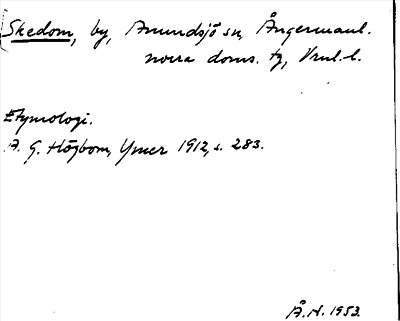 Skedom, by, Anundsjö sn, Ångermanl.
norra doms. tg, Vnl. l.
Etymologi.
A. G. Högbom, Ymer 1912, s. 283.
Å.N. 1953.